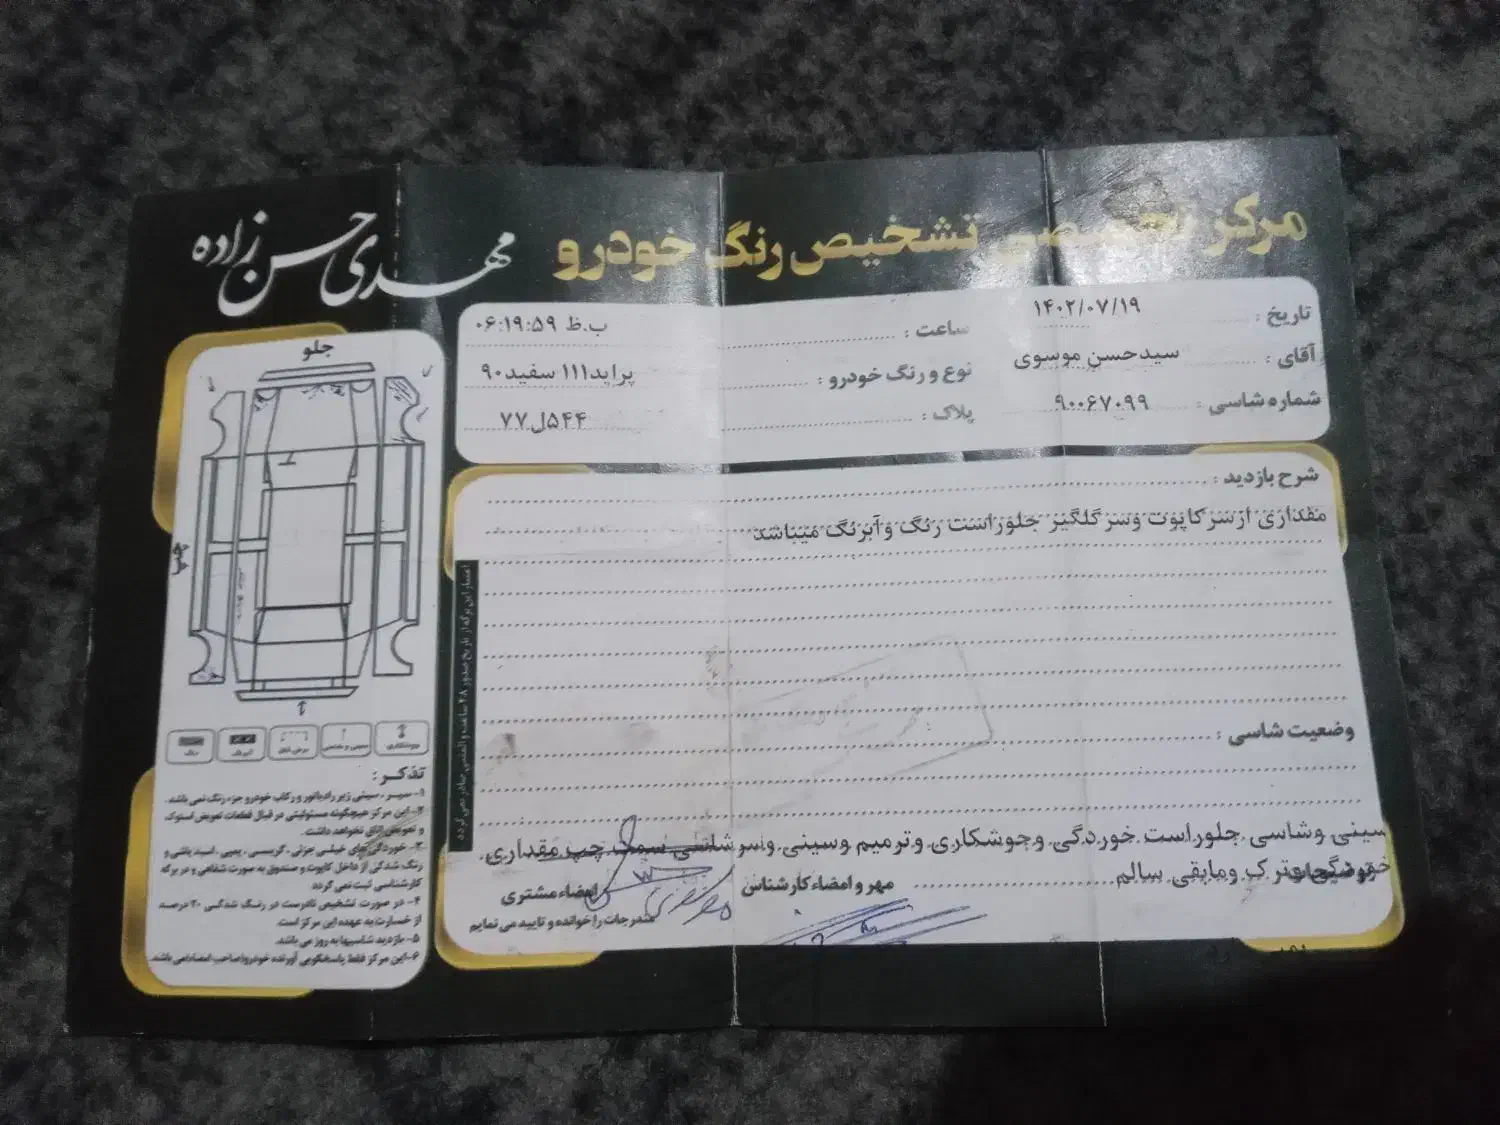 مرکز تخصصی تشخیص رنگ خودرو
مهدی حسن زاده
تاریخ : ۱۴۰۲/۰۷/۱۹
ساعت : ۰۶:۱۹:۵۹ ب.ظ
آقای : سیدحسن موسوی
نوع و رنگ خودرو : پراید۱۱۱ سفید۹۰
شماره شاسی : ۹۰۰۶۷۰۹۹
پلاک : ۵۴۴ل۷۷
شرح بازدید :
مقداری ازسرکاپوت وسرگلگیر جلوراست رنگ وآبرنگ میباشد
وضعیت شاسی :
سینی وشاسی جلوراست خوردگی وجوشکاری وترمیم وسینی وسرشاسی سمت چپ مقداری
وترک ومابقی سالم
مهر و امضاء کارشناس
امضاء مشتری
مندرجات را خوانده و تایید می نمایم
جلو
چپ
تذکر :
۱- سپر ، سینی زیر رادیاتور و رکاب خودرو جزء رنگ نمی باشد.
۲- این مرکز هیچگونه مسئولیتی در قبال قطعات تعویض استوک
و تعویض اتاق نخواهد داشت.
۳- خوردگی های خیلی جزئی ،
رنگ شدگی از داخل کاپوت و صندوق به صورت شفاهی و در برگه
کارشناسی ثبت نمی گردد
۴- در صورت تشخیص نادرست در رنگ شدگی ۲۰ درصد
از خسارت به عهده این مرکز است.
۵- بازدید شاسیها به روز می باشد.
۶- این مرکز فقط پاسخگویی آورنده خودرو(صاحب امضاء)می باشد.